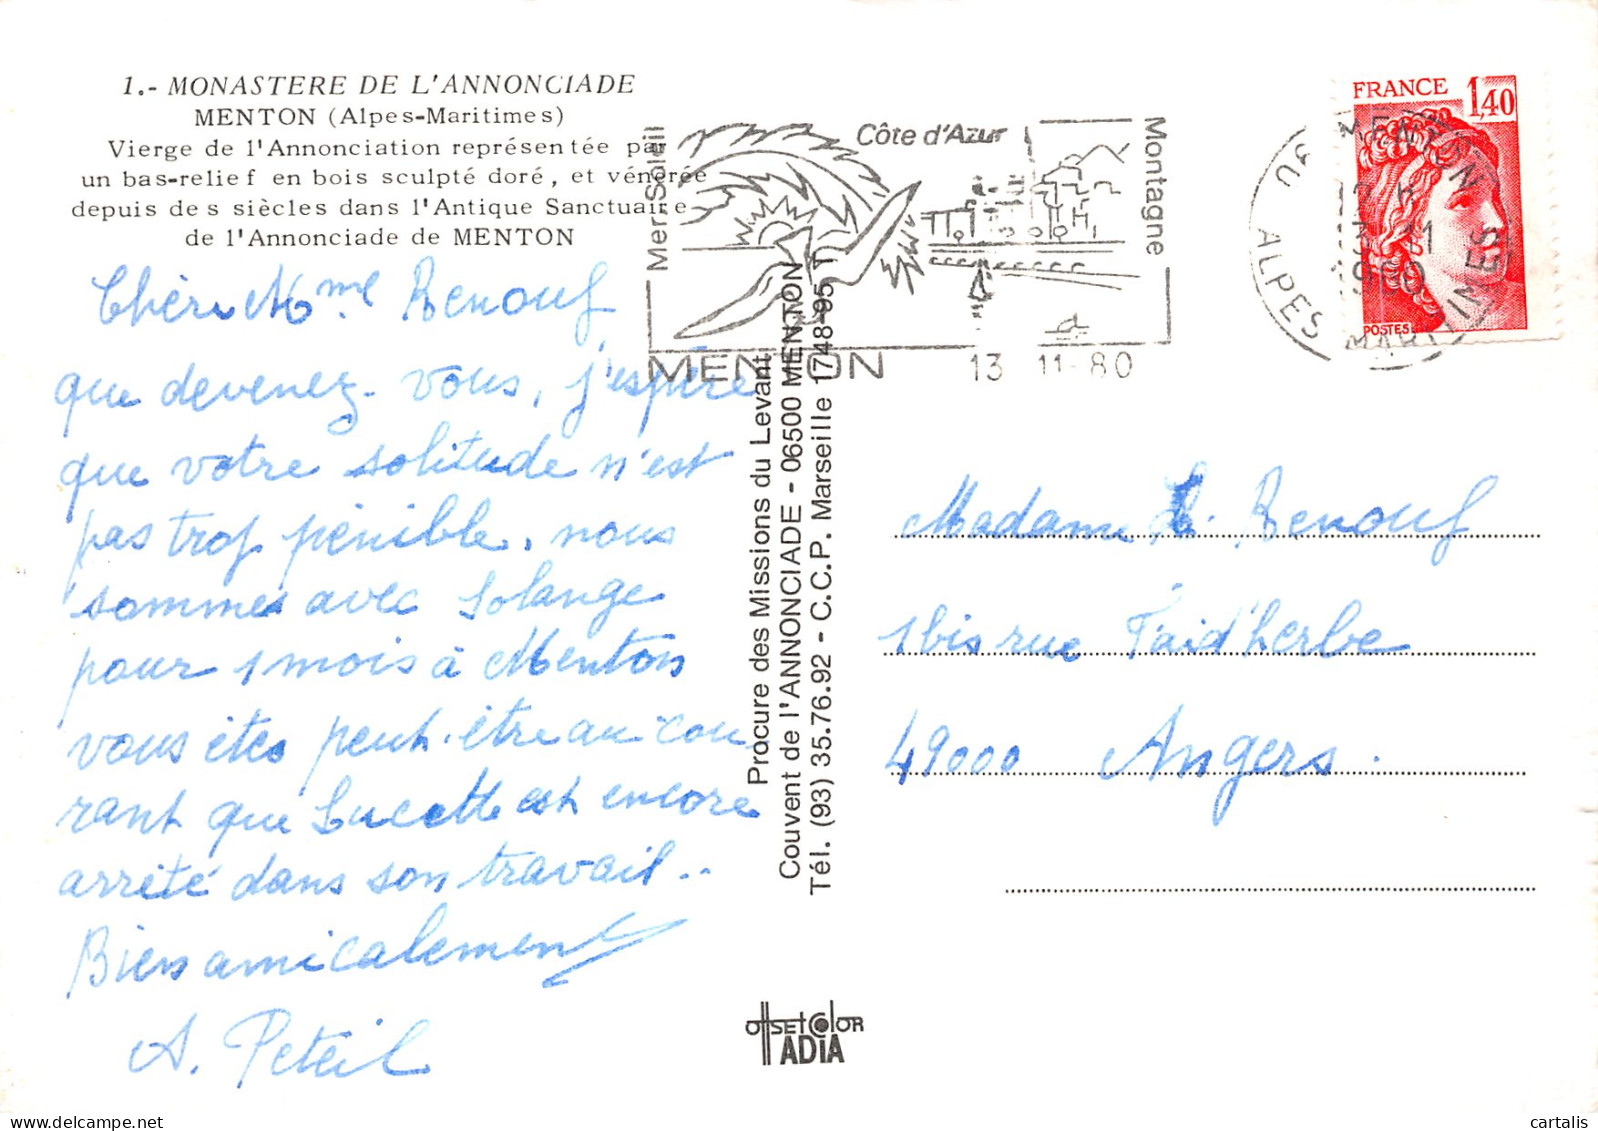 1.- MONASTERE DE L'ANNONCIADE
MENTON (Alpes-Maritimes)
Vierge de l'Annonciation représentée par
un bas-relief en bois sculpté doré, et vénérée
depuis des siècles dans l'Antique Sanctuaire
de l'Annonciade de MENTON
Chère Mme Renouf
que devenez-vous, j'espère
que votre solitude n'est
pas trop pénible, nous
sommes avec Solange
pour 1 mois à Menton
vous êtes peut-être au cou
rant que Lucette est encore
arrêté dans son travail..
Bien amicalement
A. Peteil
Mer. Soleil
Côte d'Azur
Montagne
MENTON
13 11-80
FRANCE 1,40
POSTES
MENTON
13-11
1980
ALPES MARITIMES
Procure des Missions du Levant
Couvent de l'ANNONCIADE - 06500 MENTON
Tél. (93) 35.76.92 - C.C.P. Marseille 1748-95 T
Madame L. Renouf
1bis rue Faid'herbe
49000 Angers.
OFFSET COLOR
ADIA
cartalis